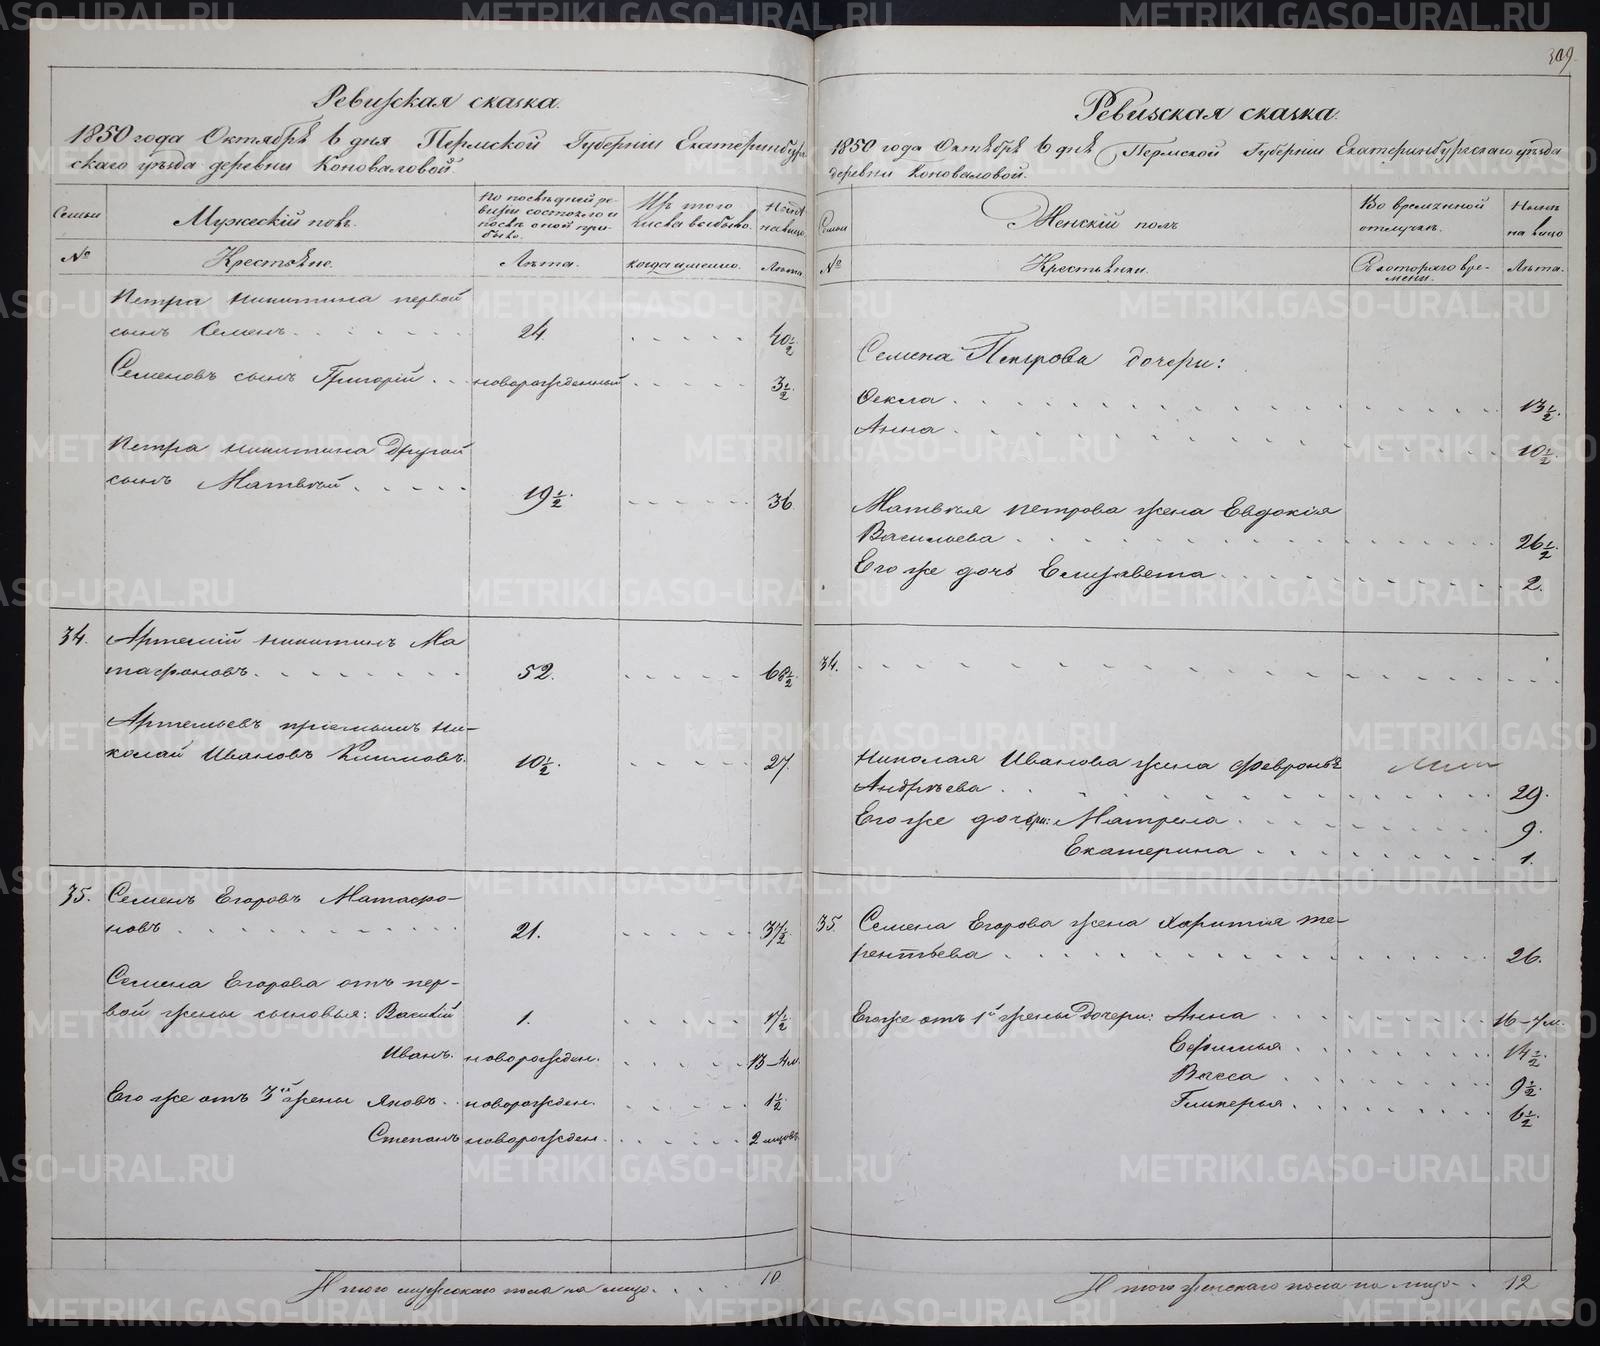 Ревизская сказка.
1850 года Октября 6 дня Пермской Губернии Екатеринбург
скаго уѣзда деревни Коноваловой.
Семьи
Мужескій полъ.
По послѣдней ре-
визіи состояло и
послѣ оной при-
было.
Изъ того
числа выбыло.
Нынѣ
на лицо.
№
Крестьяне.
Лѣта.
когда именно.
Лѣта.
Петра Никитина первой
сынъ Семенъ. 24. 40½
Семеновъ сынъ Григорій новорожденный 3½
Петра Никитина другой
сынъ Матвѣй. 19½. 36.
34. Артемій Никитинъ Ма
тафоновъ. 52. 68½
Артемьевъ пріемышъ Ни-
колай Ивановъ 10½. 27.
35. Семенъ Егоровъ Матафо-
новъ 21. 37½
Семена Егорова отъ пер-
вой жены сыновья: Василій 1. 17½
Иванъ. новорожден. 13-4м
Его же отъ 3й жены Яковъ. новорожден. 1½.
Степанъ новорожден. 2 мѣсяцовъ
Итого мужескаго пола на лицо. 10
309.
Ревизская сказка.
1850 года Октября 6 дня Пермской Губернии Екатеринбургскаго уѣзда
деревни Коноваловой.
Семьи
Женскій полъ
Во временной
отлучкѣ.
Нынѣ
на лицо
№
Крестьянки.
Съ котораго вре-
мени.
Лѣта.
Семена Петрова дочери:
Фекла. 13½.
Анна. 10½.
Матвѣя Петрова жена Евдокія
Васильева 26½
Его же дочь Елизавета 2.
34.
Николая Иванова жена Февронья
Андреева. 29.
Его же дочери: Матрена. 9.
Екатерина 1.
35. Семена Егорова жена Харитія Те-
рентьева 26.
Его же отъ 1й жены дочери: Анна 16-7м.
Ефимья 14½.
Васса 9½.
Гликерья. 6½.
Итого женскаго пола на лицо. 12
METRIKI.GASO-URAL.RU